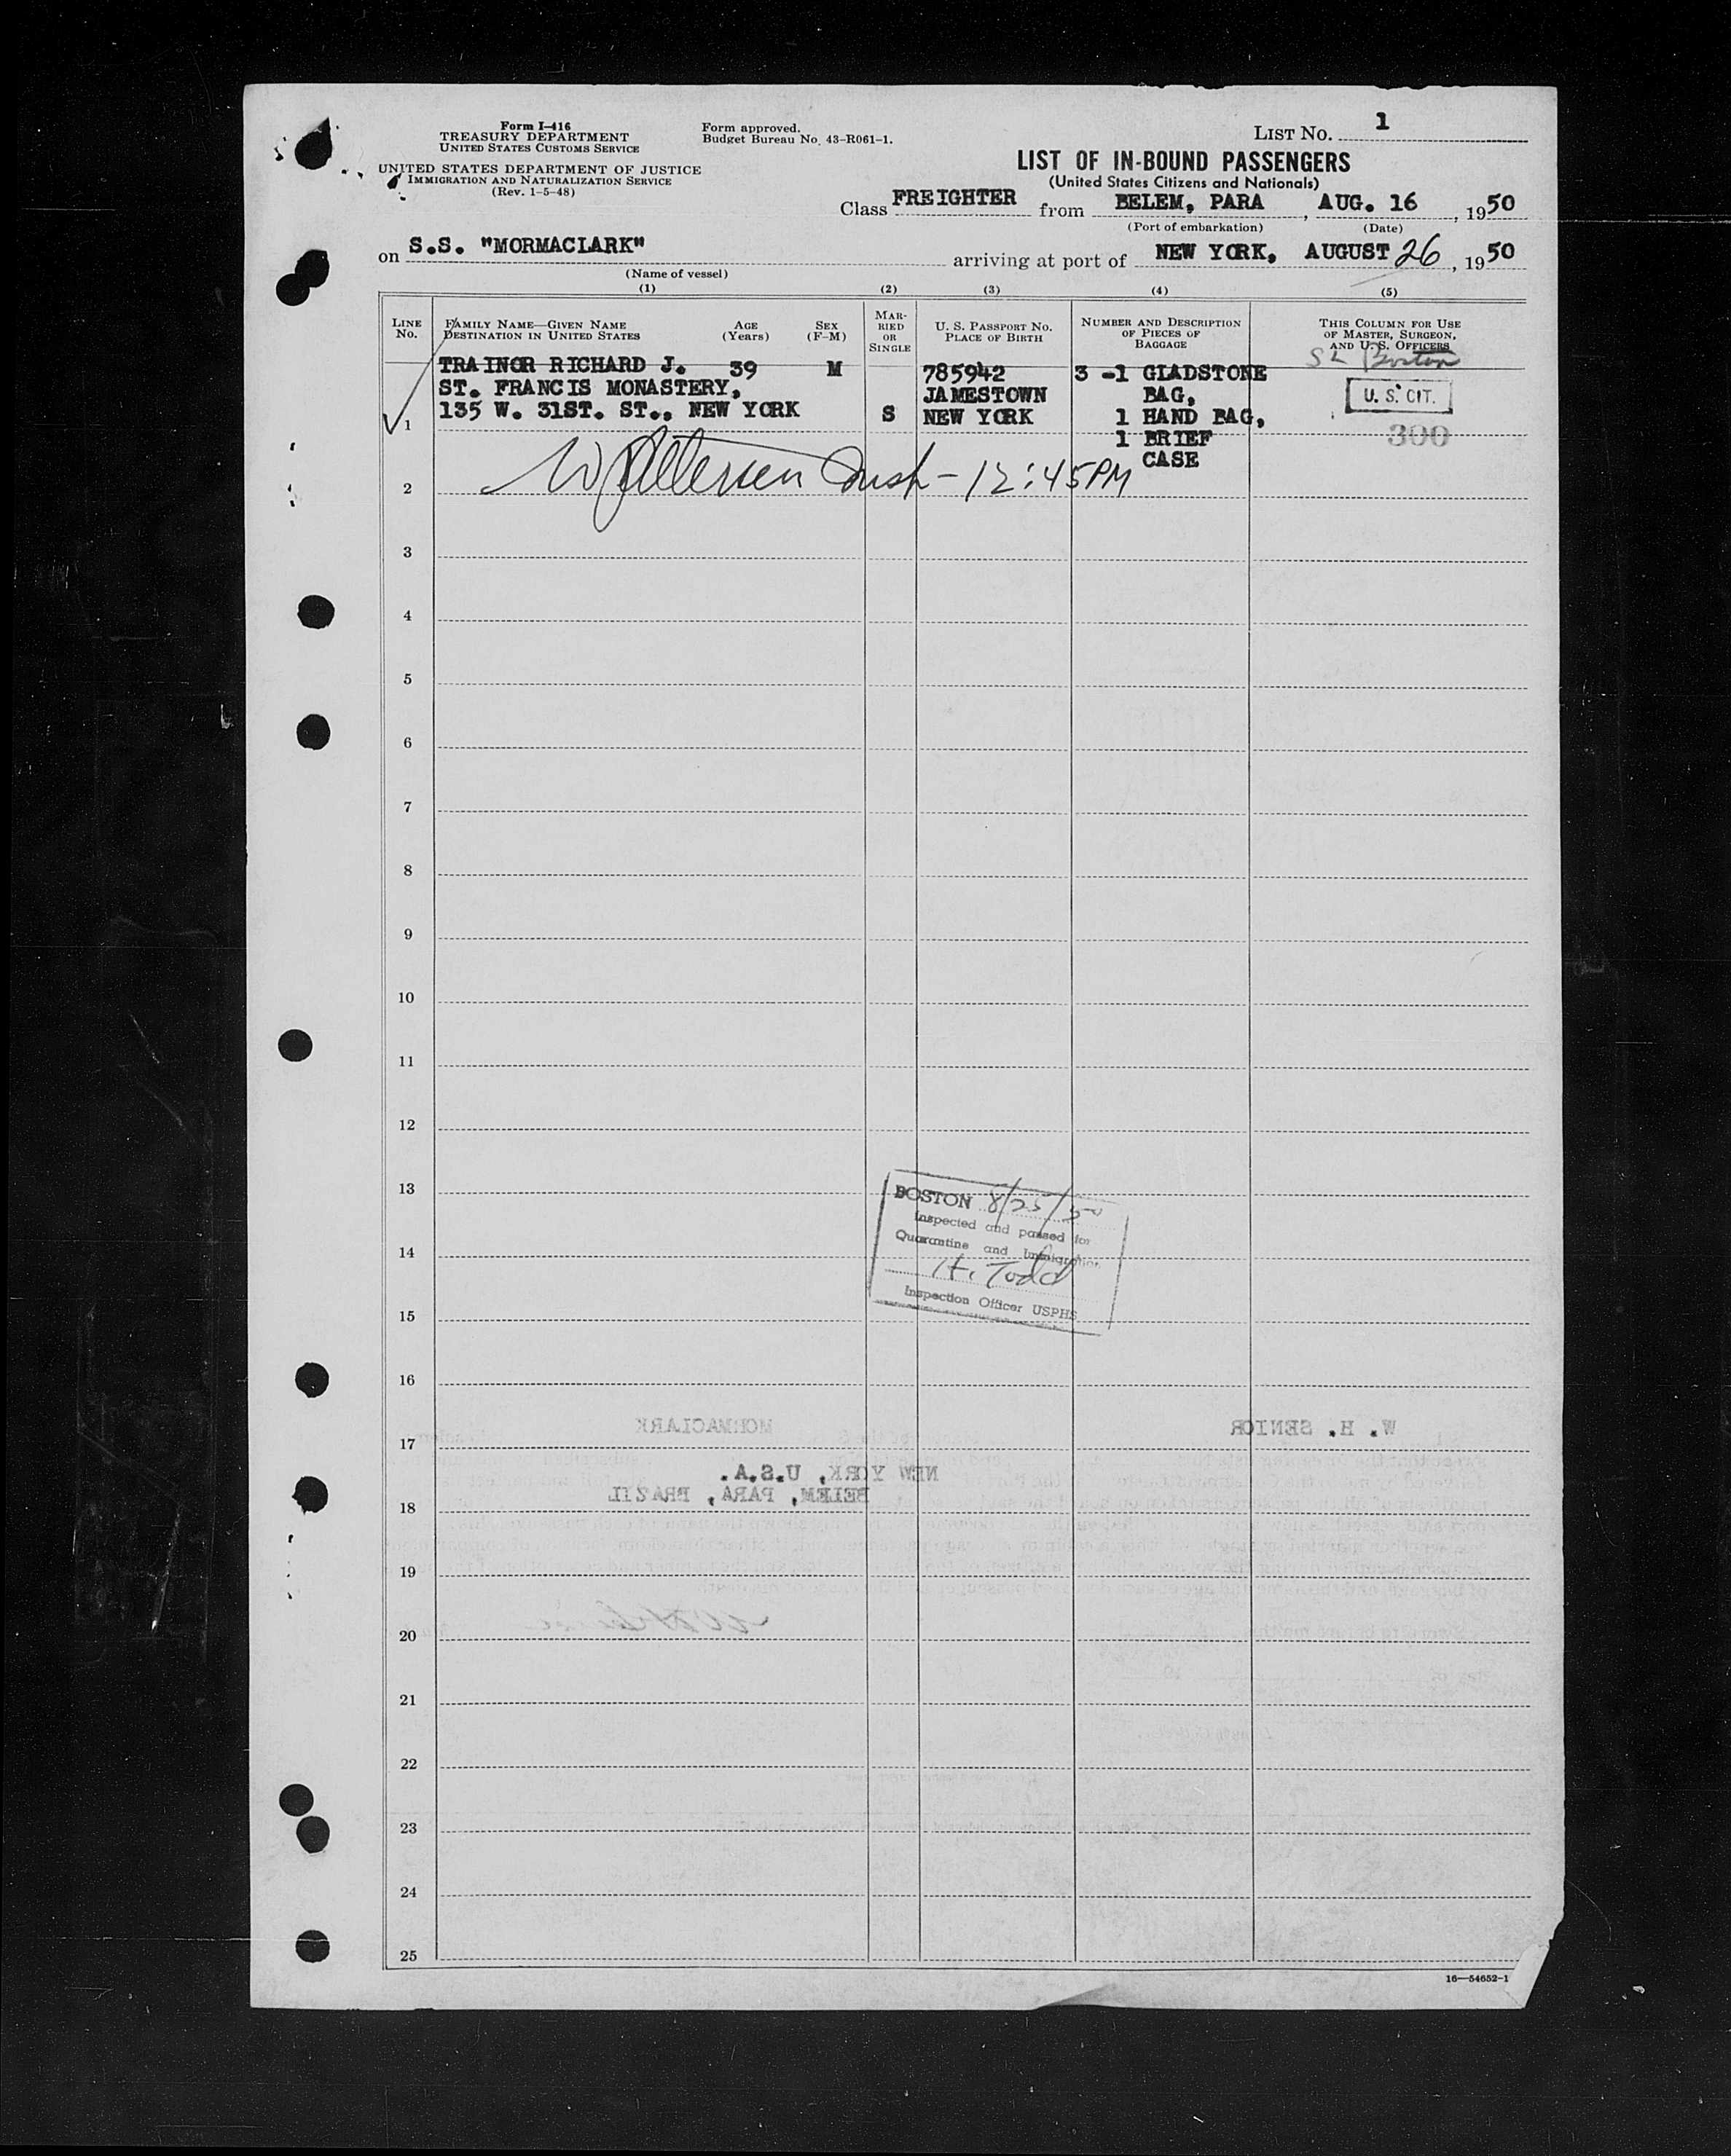 Form I-416
TREASURY DEPARTMENT
UNITED STATES CUSTOMS SERVICE
UNITED STATES DEPARTMENT OF JUSTICE
IMMIGRATION AND NATURALIZATION SERVICE
(Rev. 1-5-48)
Form approved.
Budget Bureau No. 43-R061-1.
LIST NO. 1
LIST OF IN-BOUND PASSENGERS
(United States Citizens and Nationals)
Class FREIGHTER from BELEM, PARA, AUG. 16, 1950
(Port of embarkation) (Date)
on S.S. "MORMACLARK" arriving at port of NEW YORK, AUGUST 26, 1950
(Name of vessel)
(1) (2) (3) (4) (5)
LINE NO.
FAMILY NAME—GIVEN NAME
DESTINATION IN UNITED STATES
AGE (Years)
SEX (F-M)
MARRIED OR SINGLE
U. S. PASSPORT NO.
PLACE OF BIRTH
NUMBER AND DESCRIPTION
OF PIECES OF
BAGGAGE
THIS COLUMN FOR USE
OF MASTER, SURGEON,
AND U. S. OFFICERS
TRAINOR RICHARD J. 39 M 785942 3 -1 GLADSTONE Boston
ST. FRANCIS MONASTERY, JAMESTOWN BAG, U. S. CIT.
1 135 W. 31ST. ST., NEW YORK S NEW YORK 1 HAND BAG, 300
1 BRIEF
CASE
2 12:45PM
3
4
5
6
7
8
9
10
11
12
13
BOSTON 8/25/50
Inspected and passed for
Quarantine and Immigration
H. Todd
Inspection Officer USPHS
14
15
16
17
MORMACLARK W. H. SENIOR
NEW YORK, U.S.A.
BELEM, PARA, BRAZIL
18
19
20
21
22
23
24
25
16—54652-1